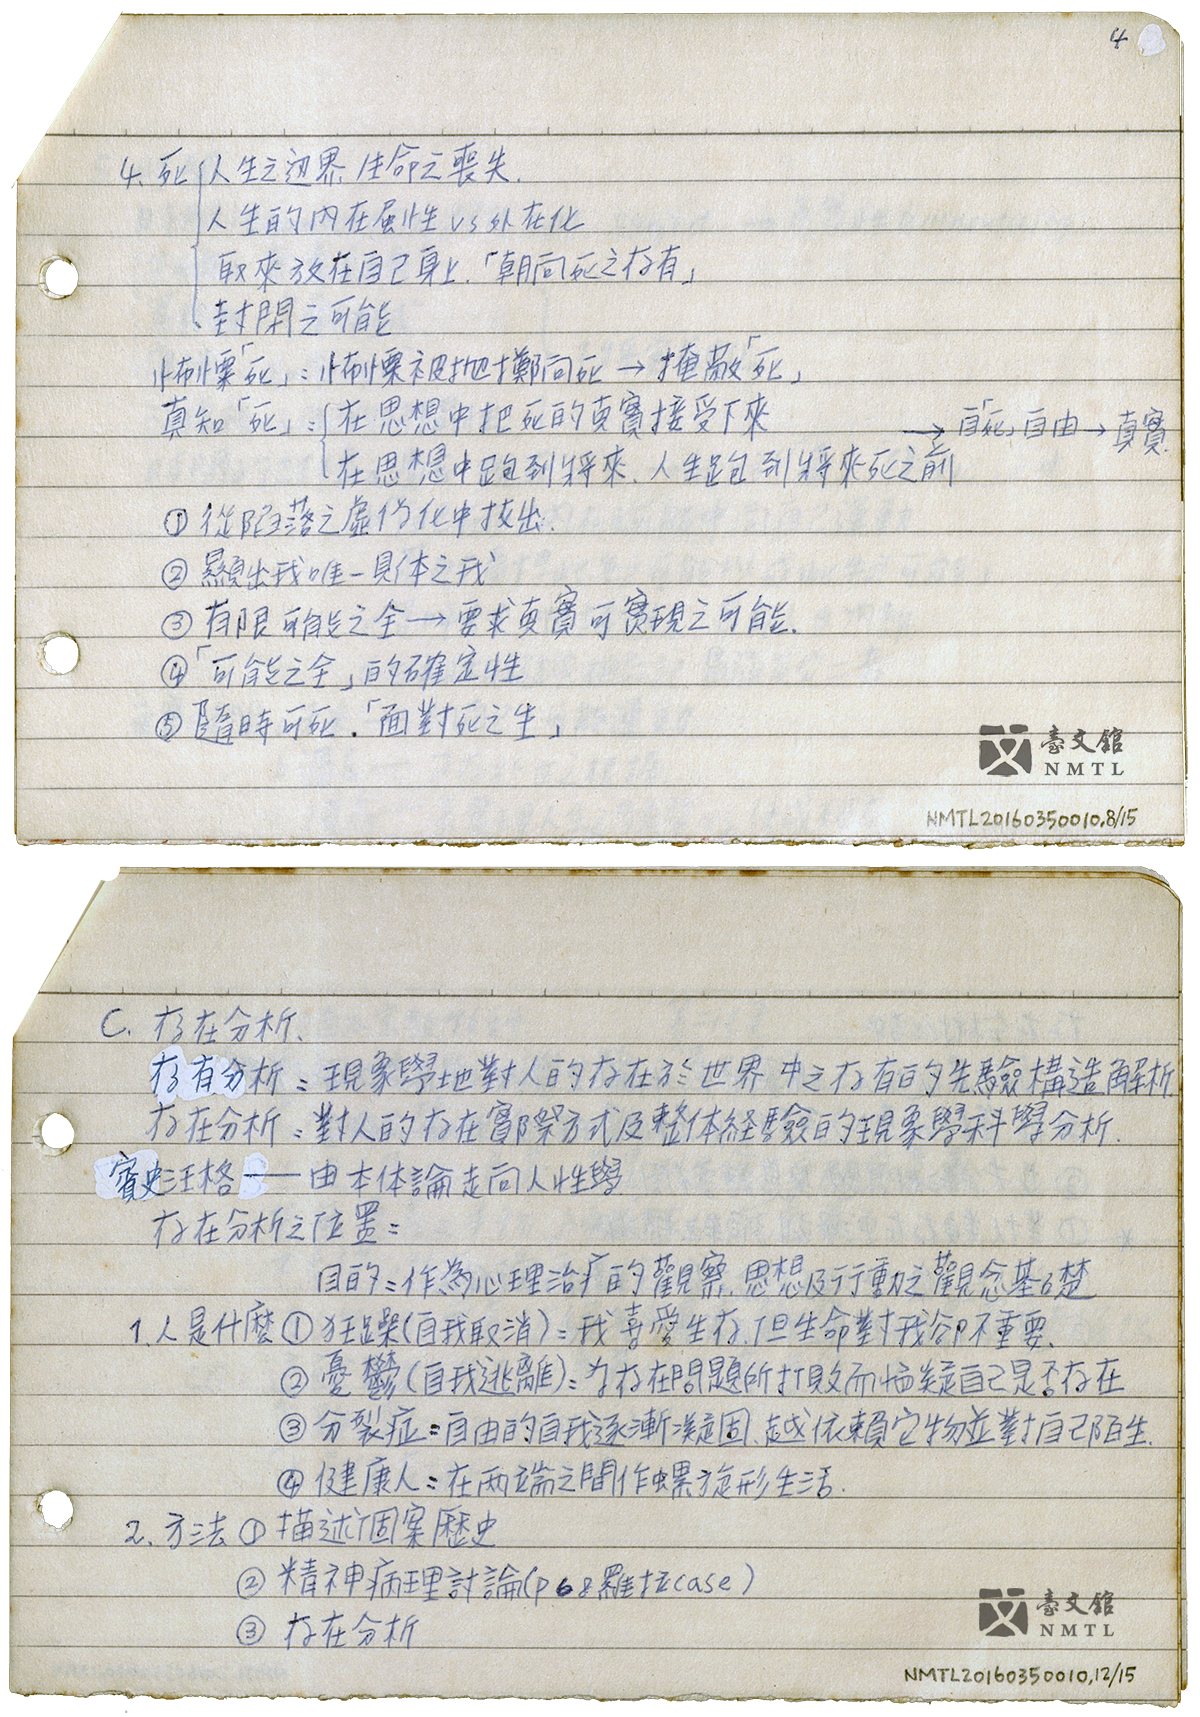 4
4. 死 人生之边界, 生命之喪失.
人生的內在屬性 vs 外在化
取來放在自己身上.「朝向死之存有」
封閉之可能
怖慄「死」：怖慄被拋擲向死 → 掩蔽「死」
真知「死」：在思想中把死的真實接受下來
→ 自「死」自由 → 真實.
在思想中跑到將來. 人生跑到將來死之前
① 從陷落之虛偽化中拔出.
② 顯出我唯一具体之我
③ 有限可能之全 → 要求真實可實現之可能.
④「可能之全」的確定性
⑤ 隨時可死.「面對死之生」
臺文館
NMTL
NMTL20160350010,8/15
C. 存在分析.
存有分析：現象學地對人的存在於世界中之存有的先驗構造解析.
存在分析：對人的存在實際方式及整体経驗的現象學科學分析.
賓史汪格 —— 由本体論走向人性學
存在分析之位置：
目的：作為心理治疗的觀察.思想及行動之觀念基礎
1. 人是什麼 ① 狂躁(自我取消)：我喜愛生存.但生命對我卻不重要.
② 憂鬱(自我逃離)：为存在問題所打敗而懷疑自己是否存在
③ 分裂症：自由的自我逐漸凝固.越依賴它物並對自己陌生.
④ 健康人：在両端之間作螺旋形生活.
2. 方法 ① 描述個案歷史
② 精神病理討論(p68羅拉case)
③ 存在分析
臺文館
NMTL
NMTL20160350010,12/15